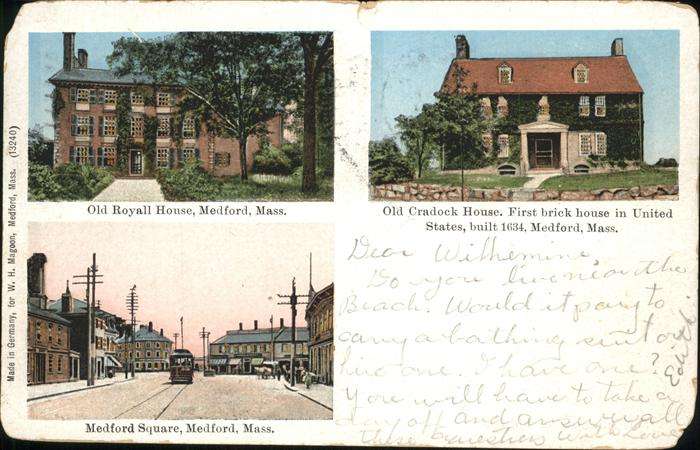 Made in Germany, for W. H. Magoon, Medford, Mass. (13240)
Old Royall House, Medford, Mass.
Old Cradock House. First brick house in United
States, built 1634, Medford, Mass.
Medford Square, Medford, Mass.
Dear Wilhemine,
Do you live near the
Beach. Would it pay to
carry a bathing suit or
hire one. I have one?
You will have to take a
day off and answer all
these questions With Love
Edith